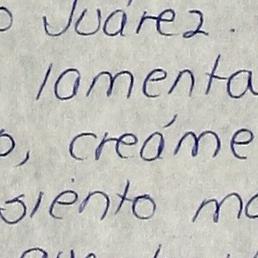 o Juárez.
lamenta
o, creáme
siento mo